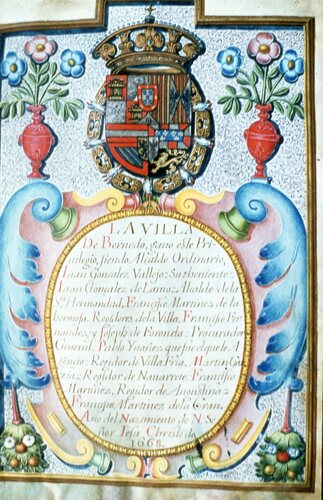 LA VILLA
De Bernedo, gano este Pri
uilegio, siendo Alcalde Ordinario,
Iuan Gonzalez Vallejo: Sutheniente
Iuan Gonzalez de Lamoz, Alcalde de la
Sta Hermandad, Francisco Martinez de la
hermosa, Regidores de la Villa, Francisco Fer
nandez, y Joseph de Foronda, Procurador
General, Pablo Yuañez, que fue depute. A
Regidor de Villa Fria, Martin
Regidor de Nauarrete, Francisco
Martinez, Regidor de Angostina,
Francisco Martinez, de la Gran.
Año del Nazimiento de N. S.
ñor Jesu Christo de
1668.